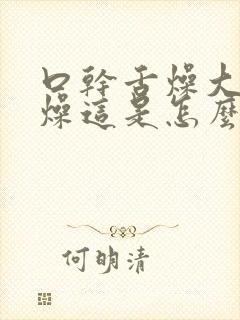 口幹舌燥大
燥這是怎麼
何明清